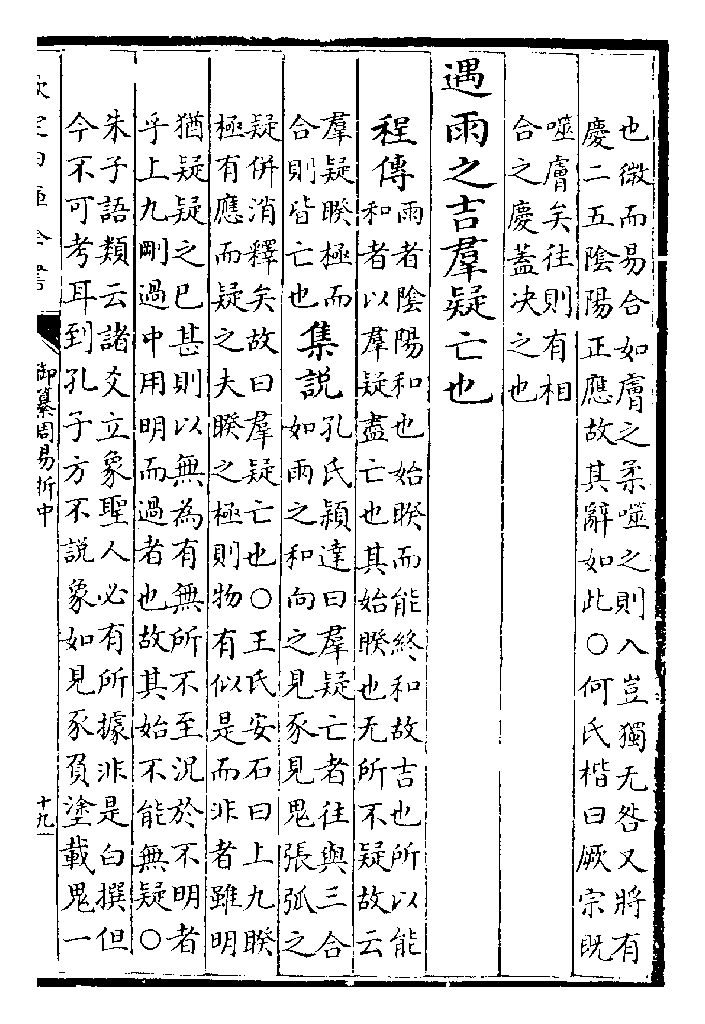 也微而易合如膚之柔噬之則入豈獨无咎又將有
慶二五陰陽正應故其辭如此○何氏楷曰厥宗旣
噬膚矣往則有相
合之慶蓋決之也
遇雨之吉羣疑亡也
程傳
雨者陰陽和也始睽而能終和故吉也所以能
和者以羣疑盡亡也其始睽也无所不疑故云
羣疑睽極而
合則皆亡也
集說
孔氏穎達曰羣疑亡者往與三合
如雨之和向之見豕見鬼張弧之
疑併消釋矣故曰羣疑亡也○王氏安石曰上九睽
極有應而疑之夫睽之極則物有似是而非者雖明
猶疑疑之已甚則以無為有無所不至況於不明者
乎上九剛過中用明而過者也故其始不能無疑○
朱子語類云諸爻立象聖人必有所據非是白撰但
今不可考耳到孔子方不說象如見豕負塗載鬼一
欽定四庫全書
御纂周易折中
十九